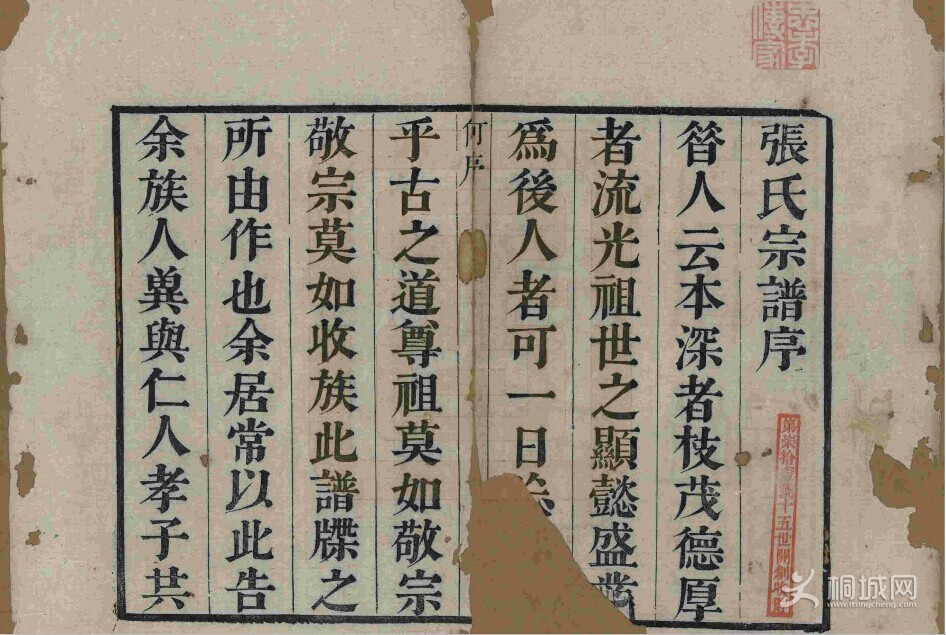 忠孝傳家
張氏宗譜序
昝人云本深者枝茂德厚
者流光祖世之顯懿盛
爲後人者可一日
何序
乎古之道尊祖莫如敬宗
敬宗莫如收族此譜牒之
所由作也余居常以此告
余族人兾與仁人孝子共
第柒拾 十五世
桐城网
www.itongcheng.com